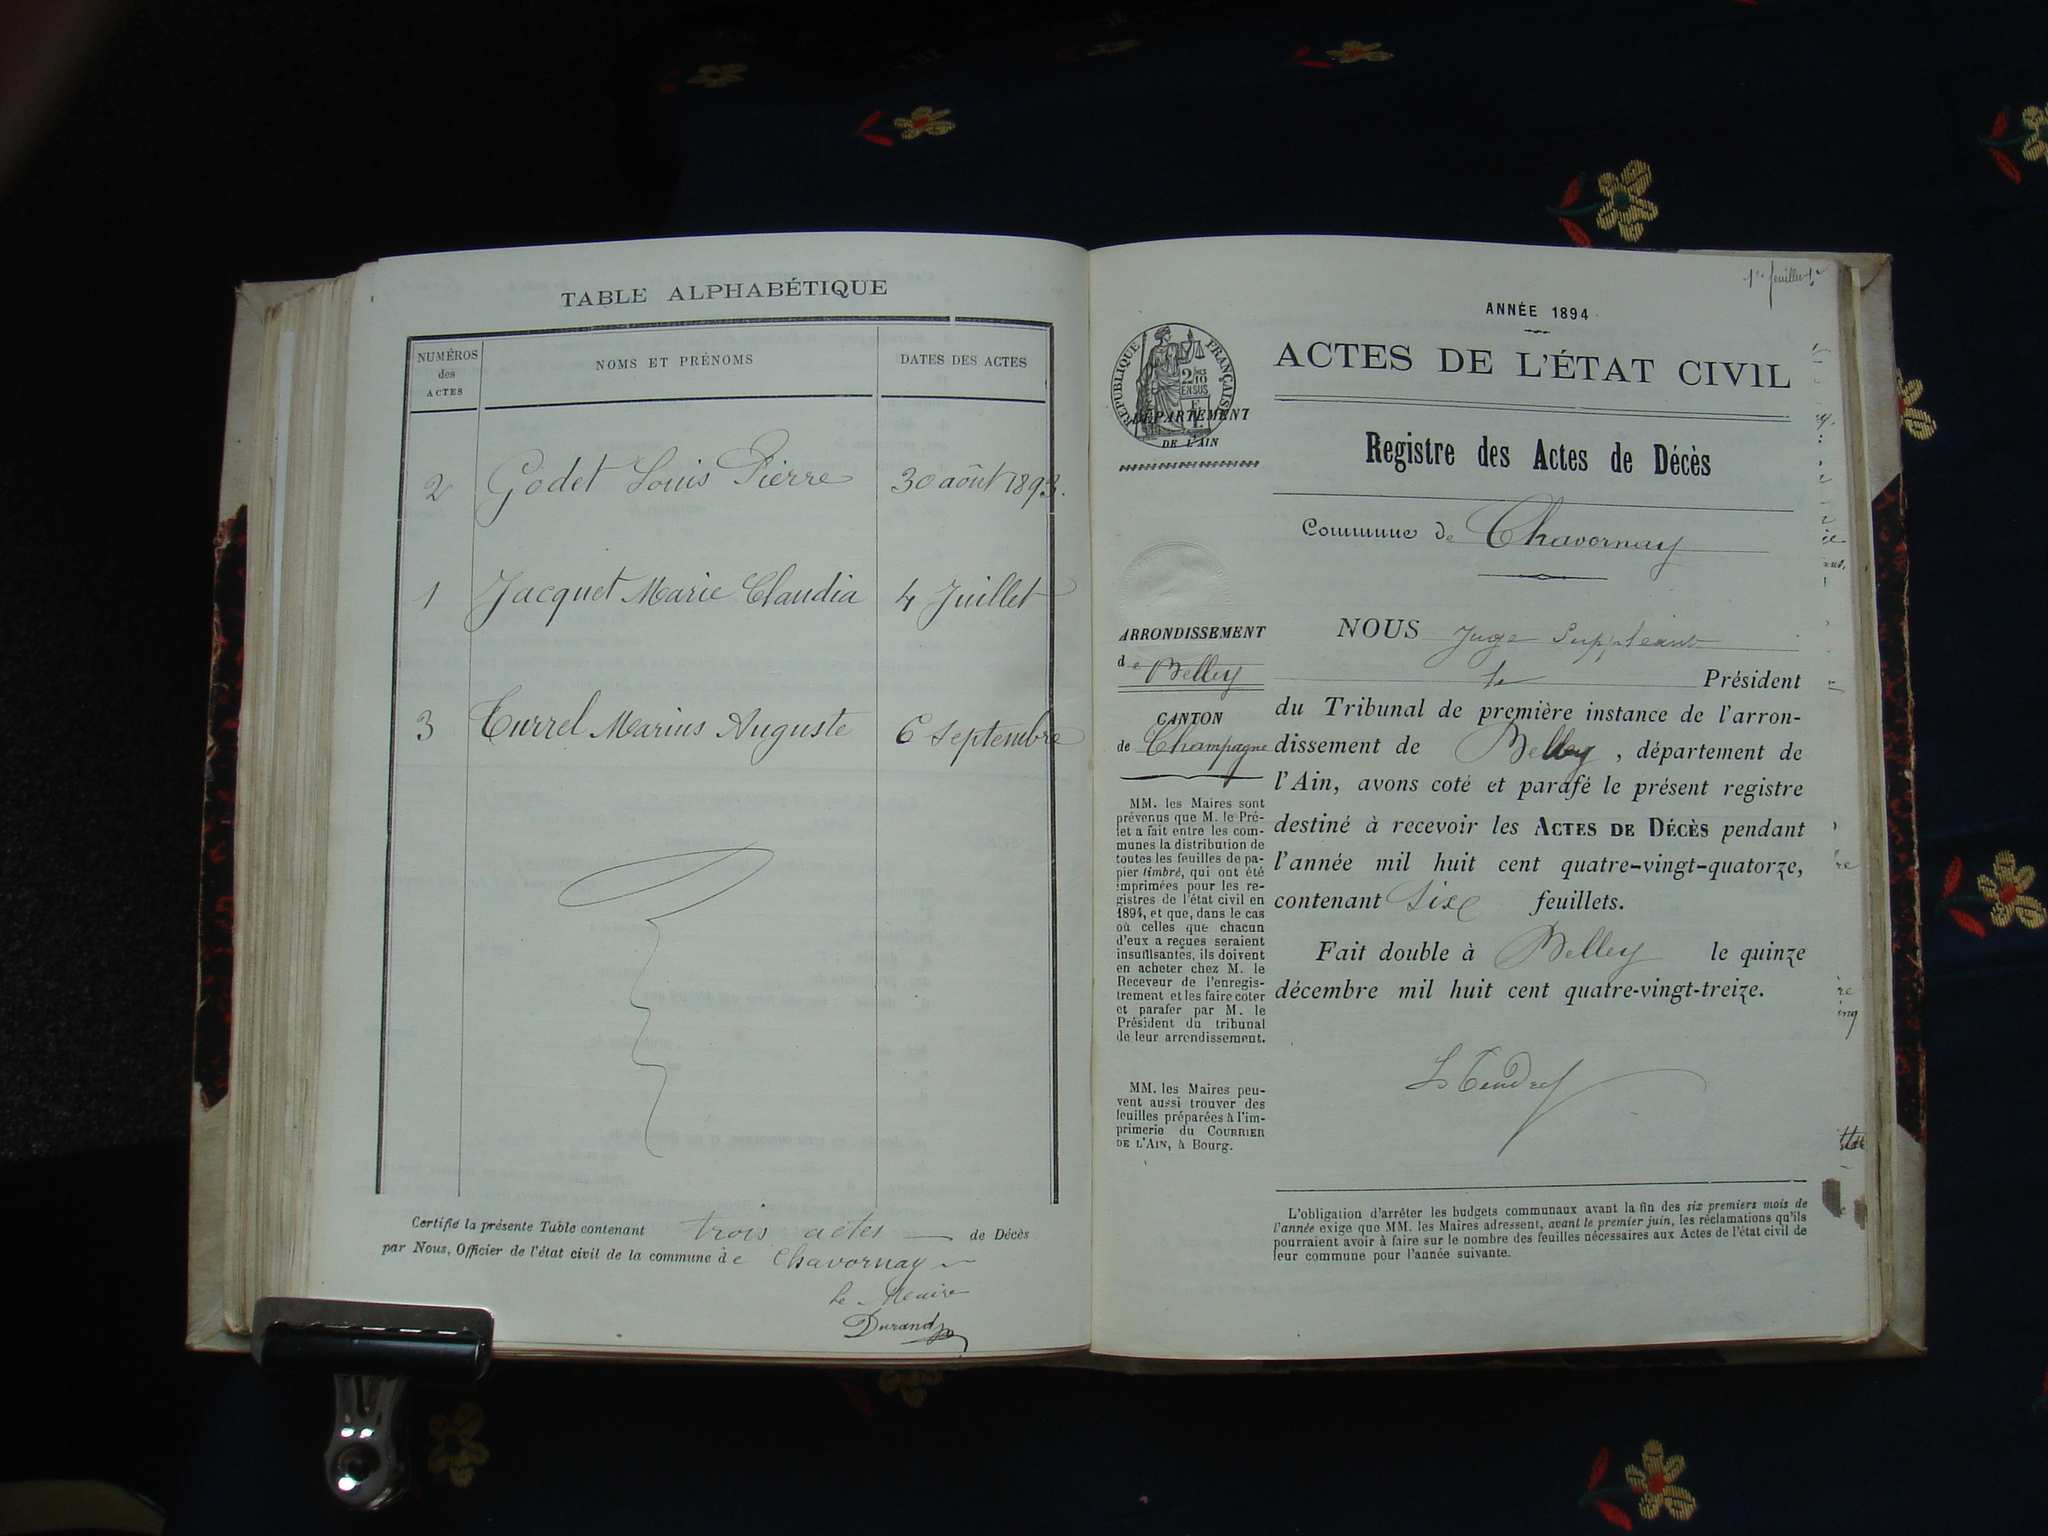 TABLE ALPHABÉTIQUE
NUMÉROS des ACTES
NOMS ET PRÉNOMS
DATES DES ACTES
2 Godet Louis Pierre 30 août 1893.
1 Jacquet Marie Claudia 4 Juillet
3 Turrel Marius Auguste 6 Septembre
Certifié la présente Table contenant trois actes de Décès
par Nous, Officier de l'état civil de la commune de Chavornay
le Maire
Durand
1er feuillet
ANNÉE 1894
ACTES DE L'ÉTAT CIVIL
RÉPUBLIQUE FRANÇAISE
2/10 EN SUS
DÉPARTEMENT
DE L'AIN
Registre des Actes de Décès
Commune de Chavornay
ARRONDISSEMENT
de Belley
CANTON
de Champagne
MM. les Maires sont
prévenus que M. le Pré-
fet a fait entre les com-
munes la distribution de
toutes les feuilles de pa-
pier timbré, qui ont été
imprimées pour les re-
gistres de l'état civil en
1894, et que, dans le cas
où celles que chacun
d'eux a reçues seraient
insuffisantes, ils doivent
en acheter chez M. le
Receveur de l'enregis-
trement et les faire coter
et parafer par M. le
Président du tribunal
de leur arrondissement.
MM. les Maires peu-
vent aussi trouver des
feuilles préparées à l'im-
primerie du COURRIER
DE L'AIN, à Bourg.
NOUS Juge Suppléant
le Président
du Tribunal de première instance de l'arron-
dissement de Belley, département de
l'Ain, avons coté et parafé le présent registre
destiné à recevoir les ACTES DE DÉCÈS pendant
l'année mil huit cent quatre-vingt-quatorze,
contenant Six feuillets.
Fait double à Belley le quinze
décembre mil huit cent quatre-vingt-treize.
L'obligation d'arrêter les budgets communaux avant la fin des six premiers mois de
l'année exige que MM. les Maires adressent, avant le premier juin, les réclamations qu'ils
pourraient avoir à faire sur le nombre des feuilles nécessaires aux Actes de l'état civil de
leur commune pour l'année suivante.